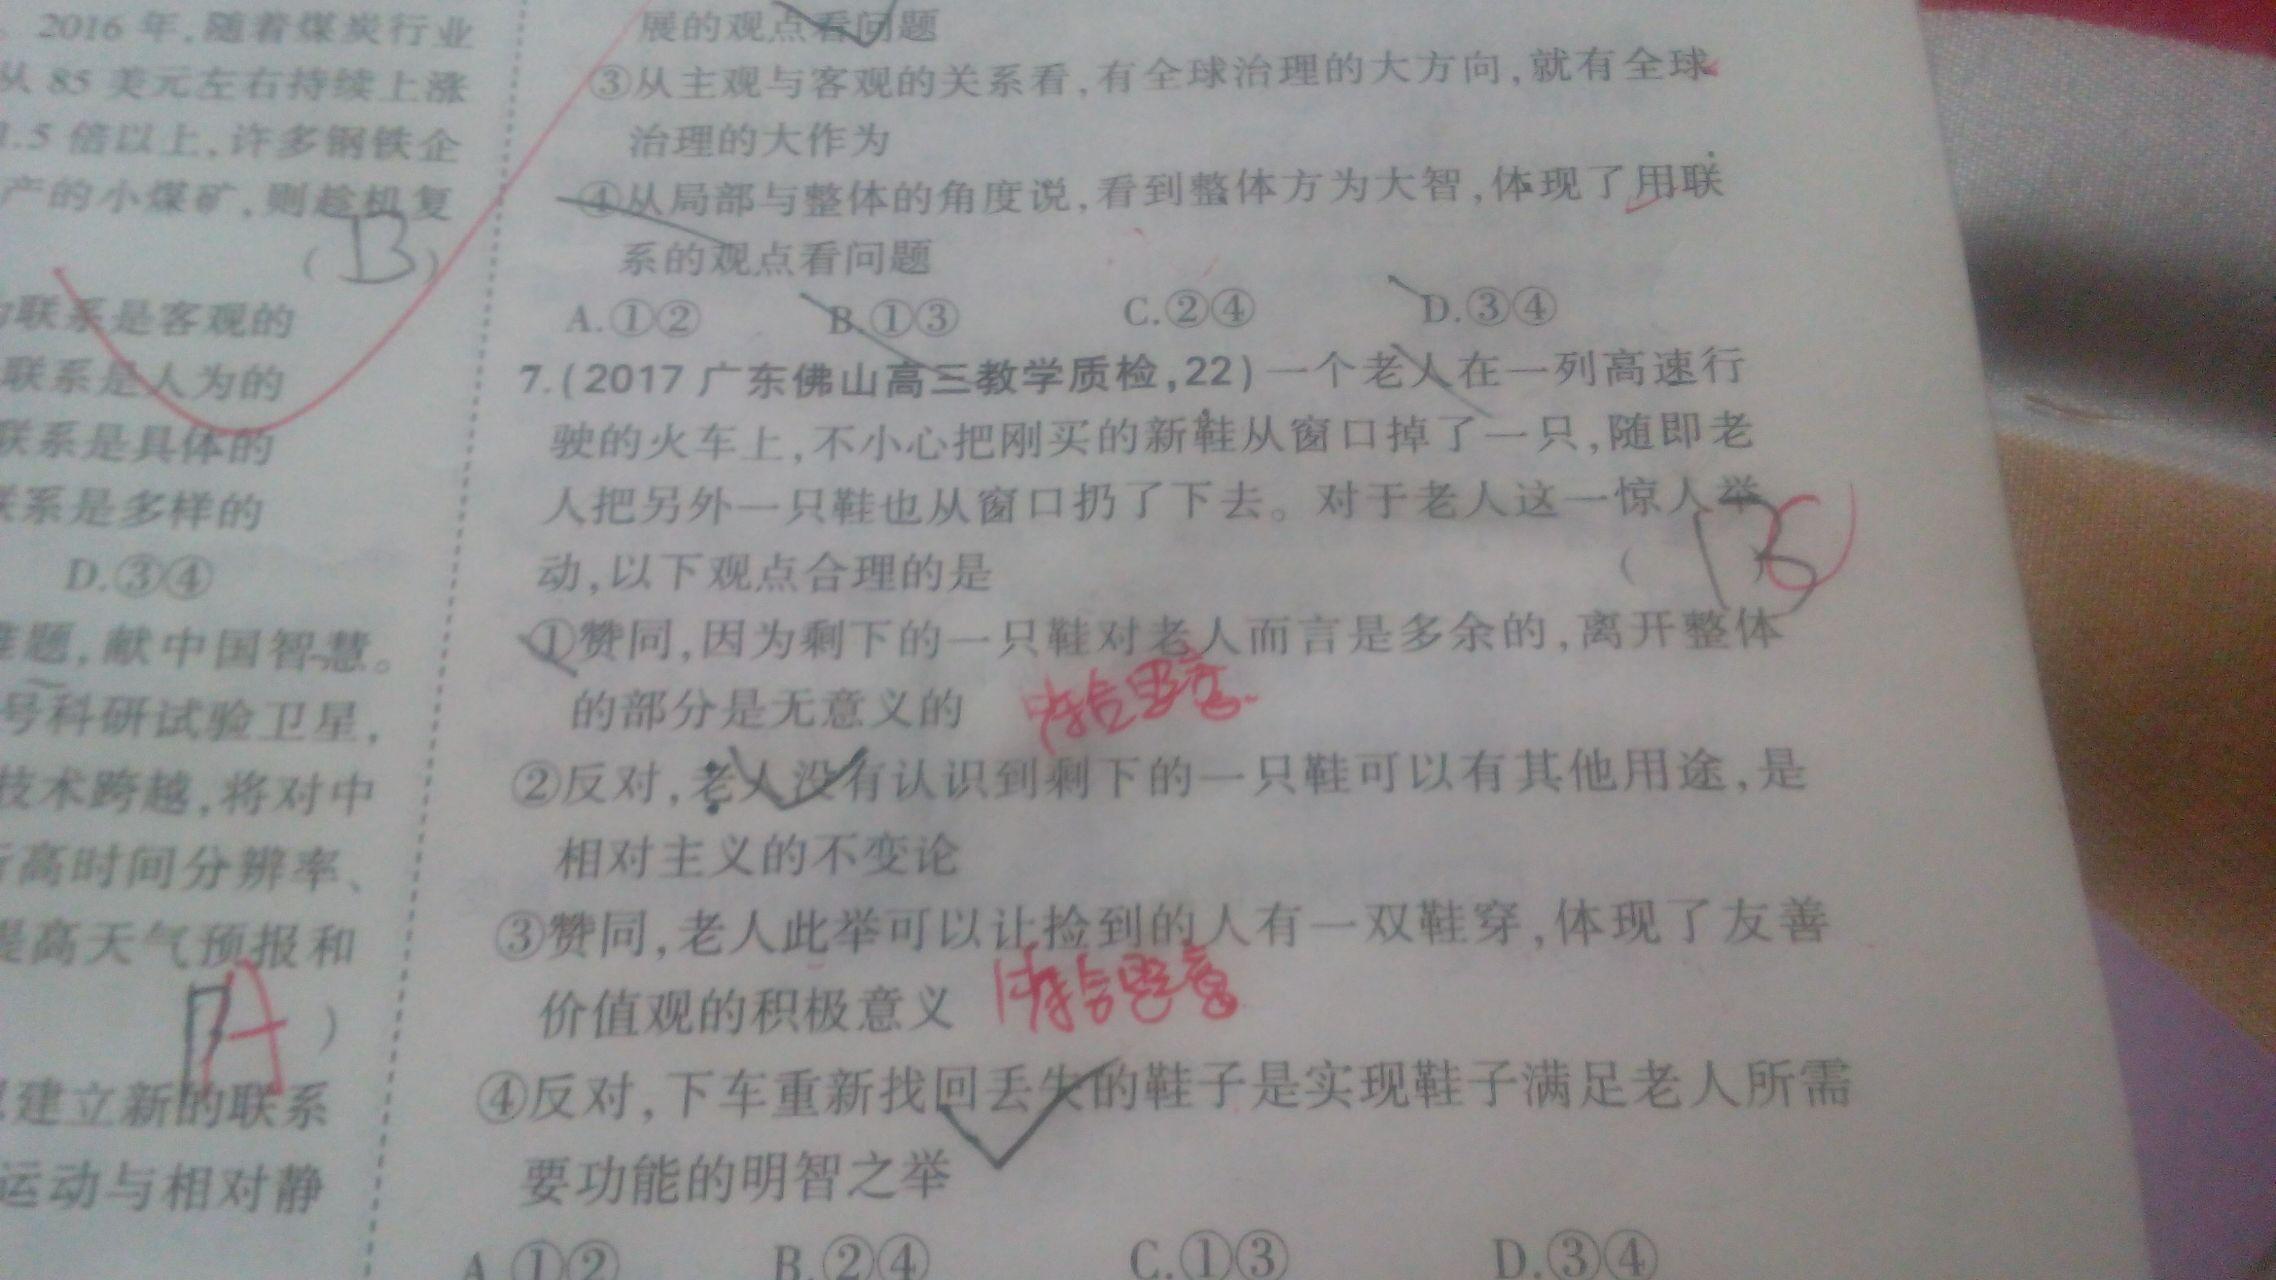 2016 年,随着煤炭行业
从 85 美元左右持续上涨
1.5 倍以上,许多钢铁企
产的小煤矿,则趁机复
( B )
联系是客观的
联系是人为的
联系是具体的
联系是多样的
D.③④
难题,献中国智慧。
号科研试验卫星,
技术跨越,将对中
高时间分辨率、
提高天气预报和
A )
建立新的联系
运动与相对静
展的观点看问题
③从主观与客观的关系看,有全球治理的大方向,就有全球
治理的大作为
④从局部与整体的角度说,看到整体方为大智,体现了用联
系的观点看问题
A.①② B.①③ C.②④ D.③④
7.(2017 广东佛山高三教学质检,22)一个老人在一列高速行
驶的火车上,不小心把刚买的新鞋从窗口掉了一只,随即老
人把另外一只鞋也从窗口扔了下去。对于老人这一惊人举
动,以下观点合理的是 ( B ) C
①赞同,因为剩下的一只鞋对老人而言是多余的,离开整体
的部分是无意义的 符合题意.
②反对,老人没有认识到剩下的一只鞋可以有其他用途,是
相对主义的不变论
③赞同,老人此举可以让捡到的人有一双鞋穿,体现了友善
价值观的积极意义 符合题意
④反对,下车重新找回丢失的鞋子是实现鞋子满足老人所需
要功能的明智之举
A.①② B.②④ C.①③ D.③④